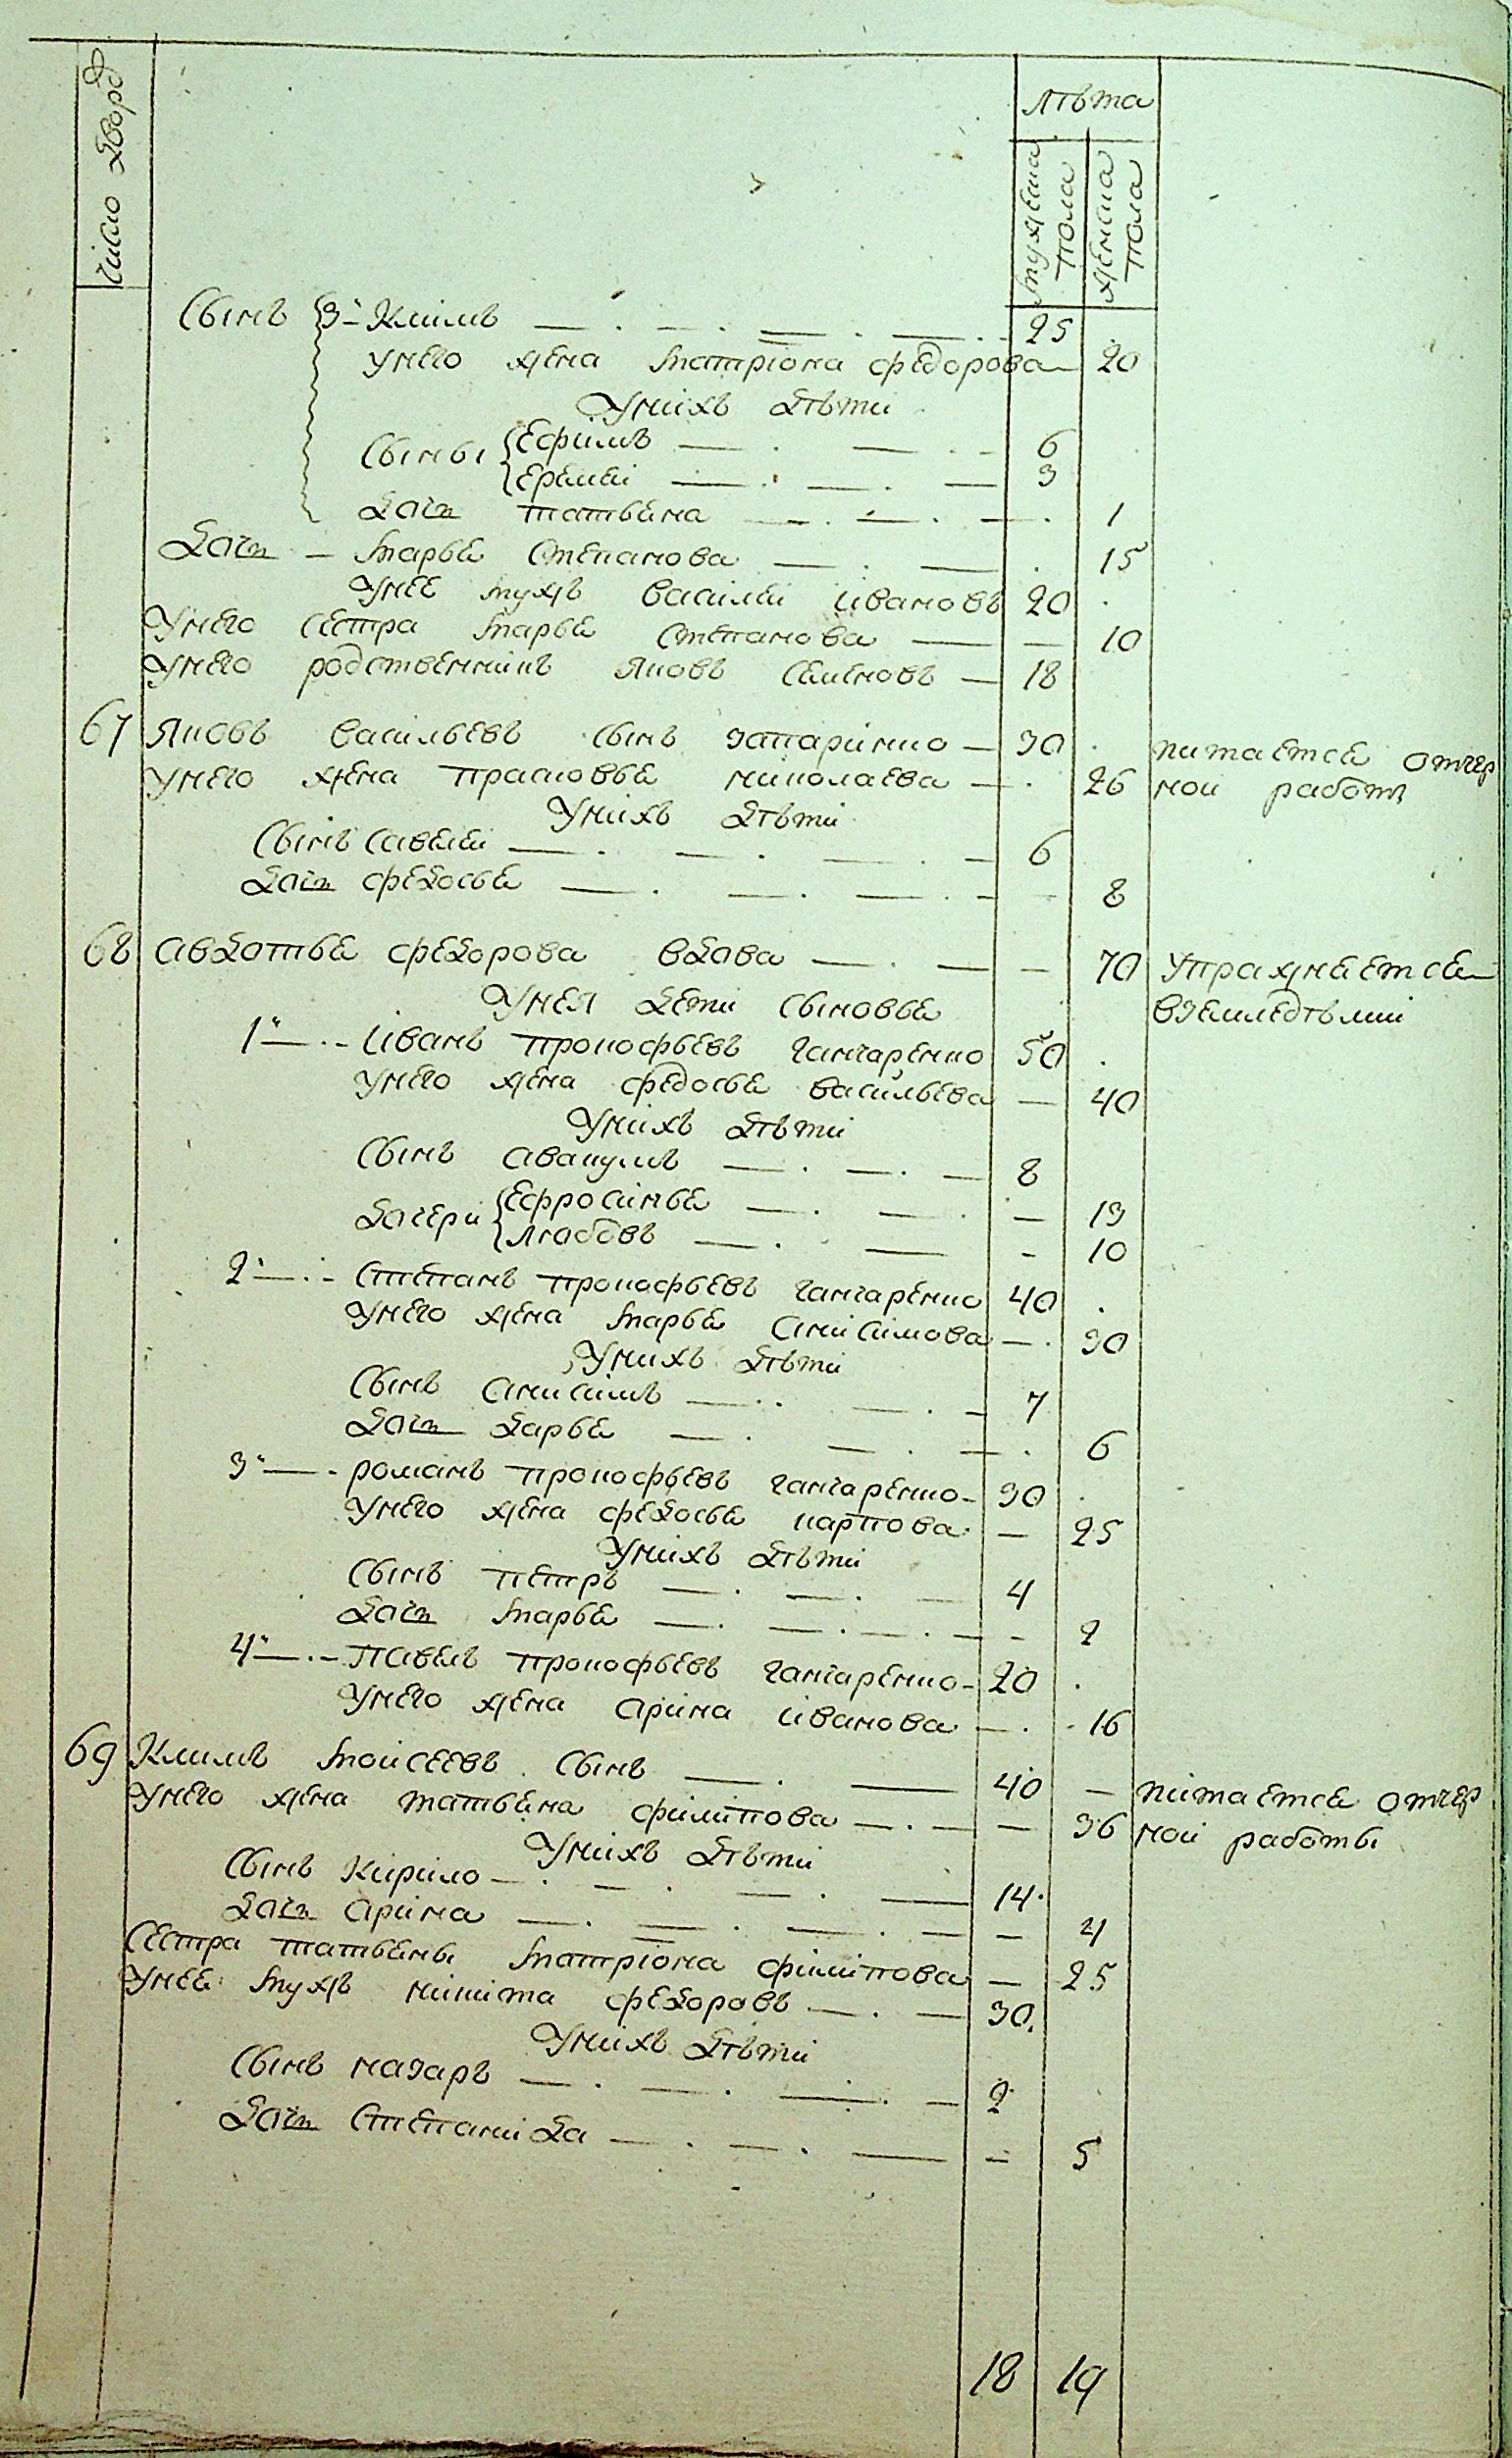 число дворѡ
лѣта
мужеска пола
женска пола
Сынъ 3- Климъ 25
унего жена матріона федорова 20
Унихъ дѣти
Сыны Ефимъ 6
еремеи 3
дочь татьяна 1
дочь - марья степанова 15
Унее мужъ василеи ивановъ 20
Унего сестра марья степанова 10
Унего родственникъ яковъ семеновъ 18
67 Яковъ васильевъ сынъ захарчино 30 питается отчер
Унего жена прасковья николаева 26 нои работы
Унихъ дѣти
Сынъ савелеи 6
дочь федосья 8
68 авдотья федорова вдова 70 упражняется
Унея дети сыновья вземледѣлии
1й Иванъ прокофьевъ гончаренко 50
Унего жена федосья васильева 40
Унихъ дѣти
Сынъ авакумъ 8
дочери Ефросинья 13
любовь 10
2й Степанъ прокофьевъ гончаренко 40
Унего жена марья анисимова 30
Унихъ дѣти
Сынъ анисимъ 7
дочь дарья 6
3й романъ прокофьевъ гончаренко 30
Унего жена федосья карпова 25
Унихъ дѣти
Сынъ петръ 4
дочь марья 2
4й Павелъ прокофьевъ гончаренко 20
Унего жена арина иванова 16
69 Климъ моисеевъ сынъ 40 питается отчер
Унего жена татьяна филипова 36 нои работы
Унихъ дѣти
Сынъ Кирило 14
дочь арина 4
Сестра татьяны матріона филипова 25
Унее мужъ никита федоровъ 30
Унихъ дѣти
Сынъ назаръ 2
дочь степанида 5
18 19